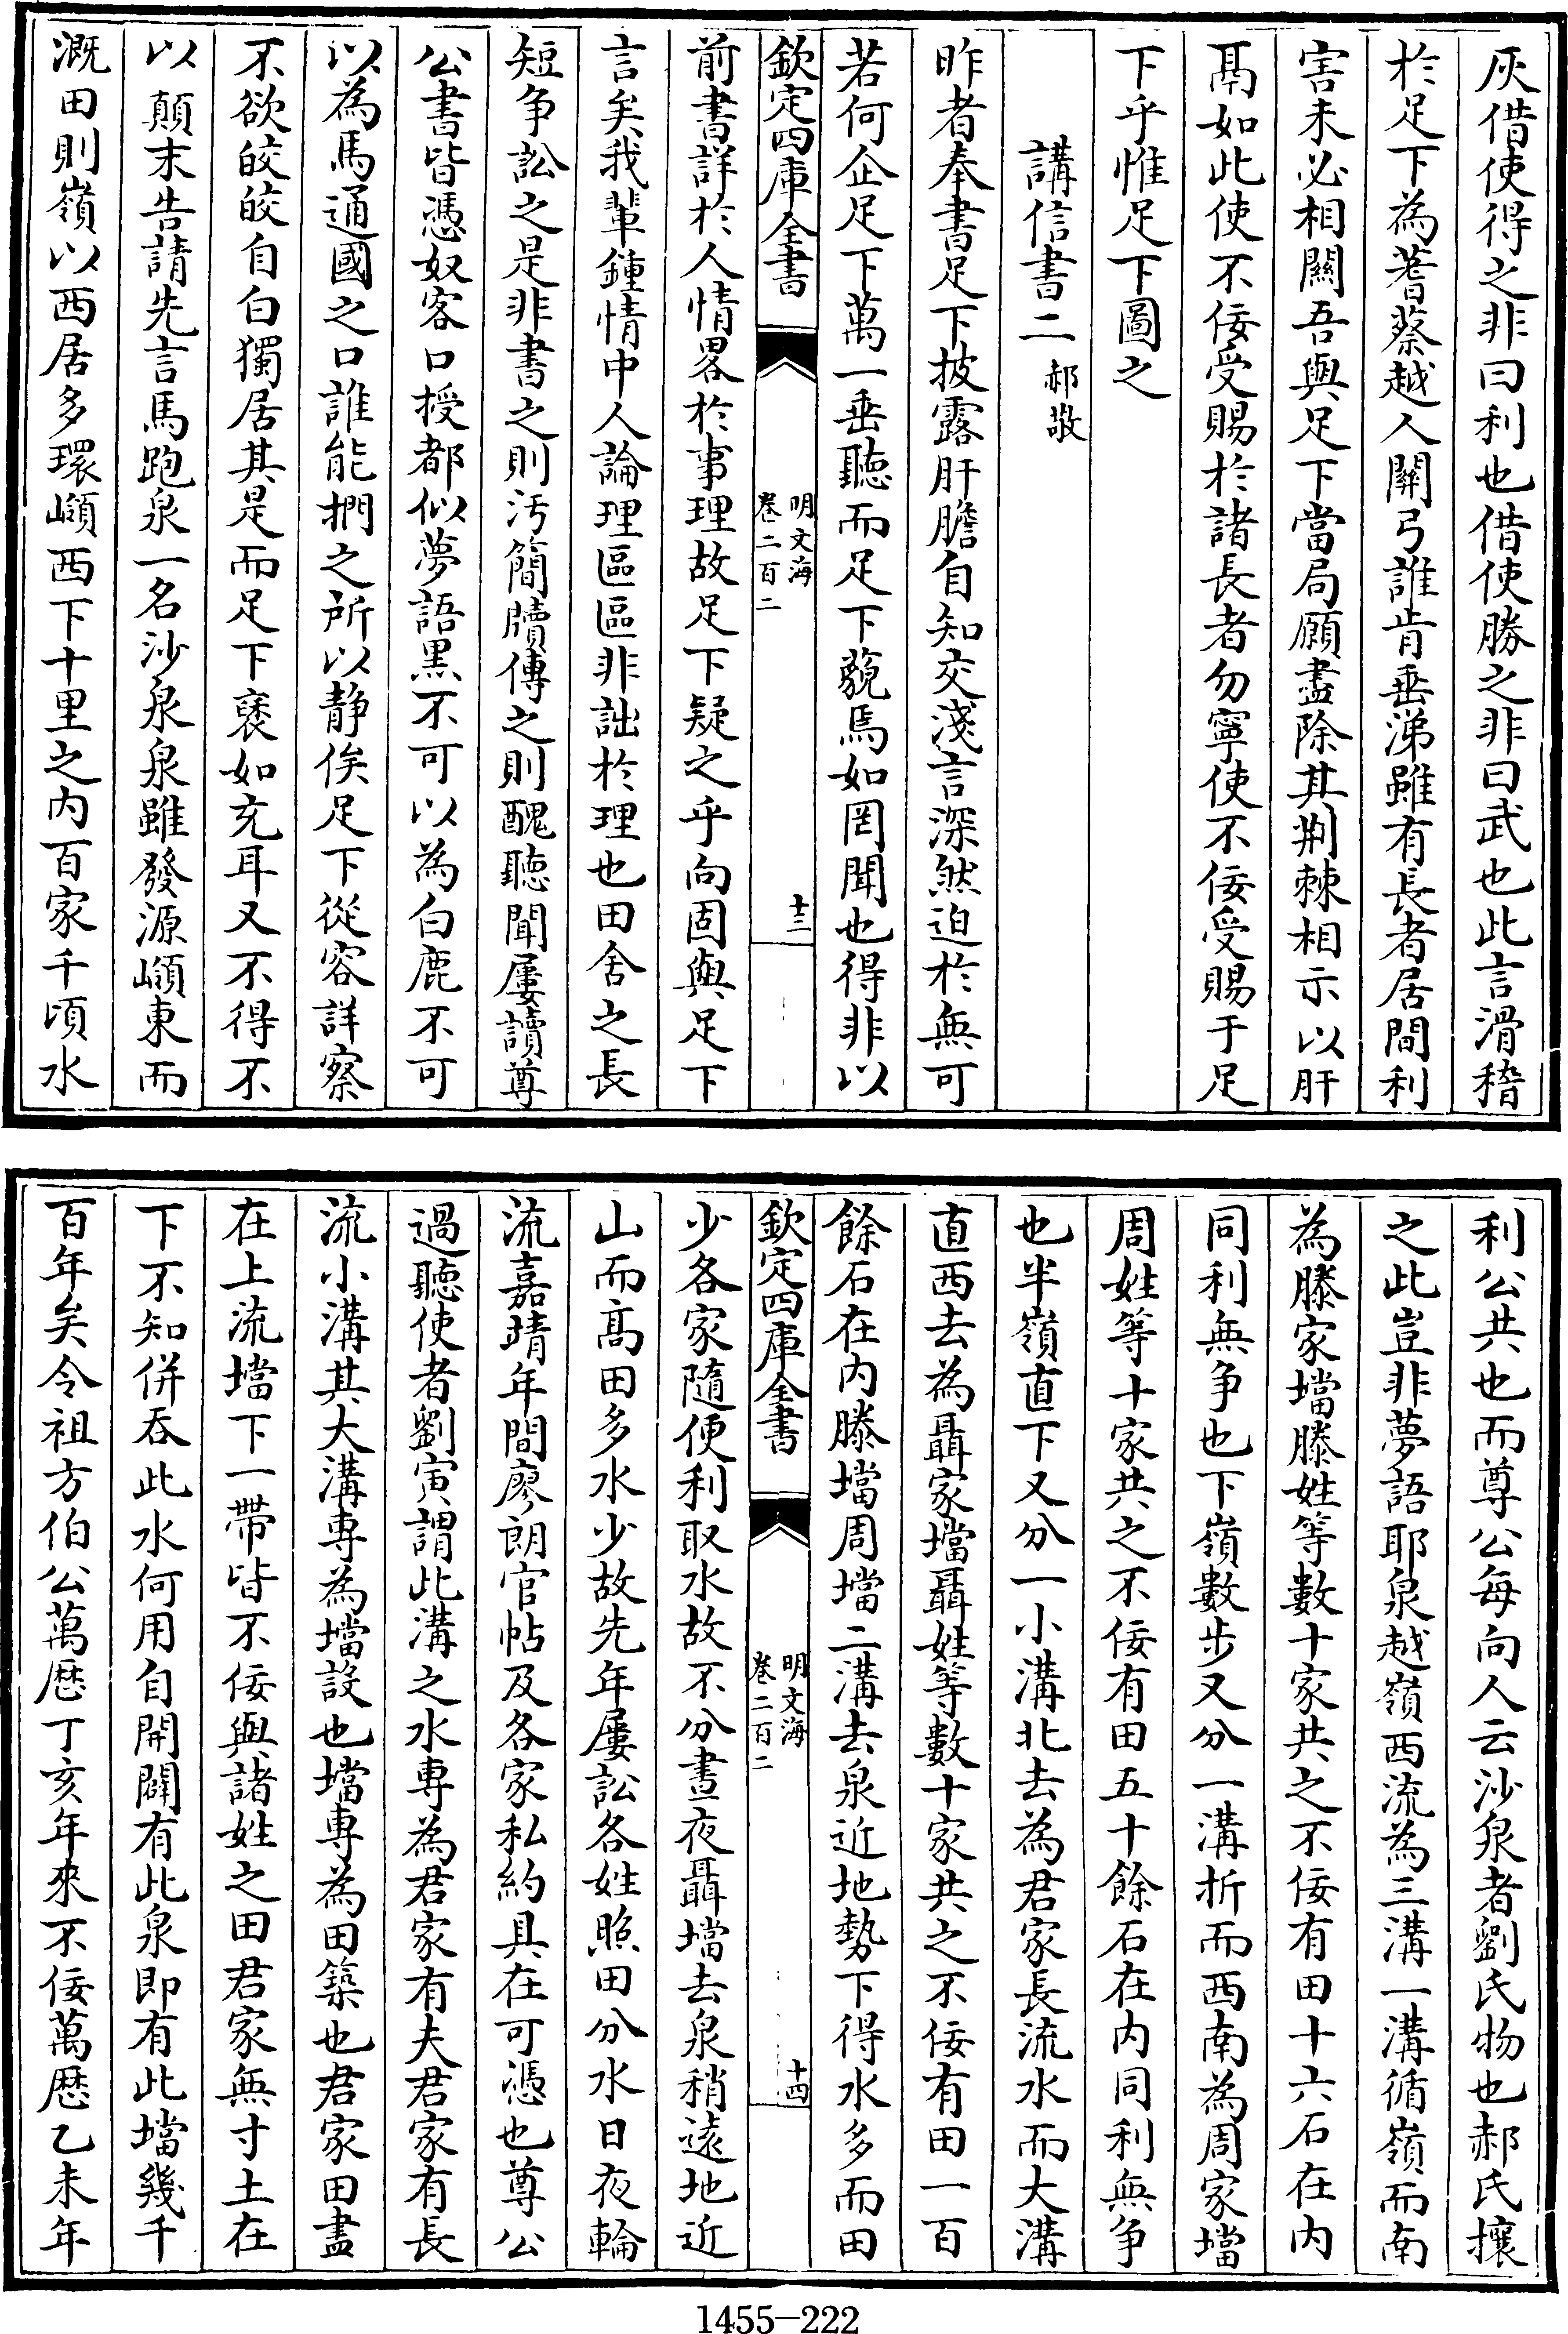 灰借使得之非曰利也借使勝之非曰武也此言滑稽
於足下為蓍蔡越人關弓誰肯垂涕雖有長者居間利
害未必相關吾與足下當局願盡除其荆棘相示以肝
鬲如此使不佞受賜於諸長者勿寧使不佞受賜于足
下乎惟足下圖之
講信書二 郝敬
昨者奉書足下披露肝膽自知交淺言深然迫於無可
若何企足下萬一垂聽而足下藐焉如罔聞也得非以
欽定四庫全書
明文海
卷二百二
十三
前書詳於人情畧於事理故足下疑之乎向固與足下
言矣我輩鍾情中人論理區區非詘於理也田舍之長
短争訟之是非書之則汚簡牘傳之則醜聽聞屢讀尊
公書皆憑奴客口授都似夢語黒不可以為白鹿不可
以為馬通國之口誰能捫之所以静俟足下從容詳察
不欲皎皎自白獨居其是而足下褎如充耳又不得不
以顛末告請先言馬跑泉一名沙泉泉雖發源巔東而
溉田則嶺以西居多環巔西下十里之内百家千頃水
利公共也而尊公每向人云沙泉者劉氏物也郝氏攘
之此豈非夢語耶泉越嶺西流為三溝一溝循嶺而南
為滕家壋滕姓等數十家共之不佞有田十六石在内
同利無争也下嶺數步又分一溝折而西南為周家壋
周姓等十家共之不佞有田五十餘石在内同利無争
也半嶺直下又分一小溝北去為君家長流水而大溝
直西去為聶家壋聶姓等數十家共之不佞有田一百
餘石在内滕壋周壋二溝去泉近地勢下得水多而田
欽定四庫全書
明文海
卷二百二
十四
少各家隨便利取水故不分晝夜聶壋去泉稍逺地近
山而髙田多水少故先年屢訟各姓照田分水日夜輪
流嘉靖年間廖朗官帖及各家私約具在可憑也尊公
過聽使者劉寅謂此溝之水專為君家有夫君家有長
流小溝其大溝専為壋設也壋専為田築也君家田盡
在上流壋下一帶皆不佞與諸姓之田君家無寸土在
下不知併吞此水何用自開闢有此泉即有此壋幾千
百年矣令祖方伯公萬厯丁亥年來不佞萬厯乙未年
1455-222